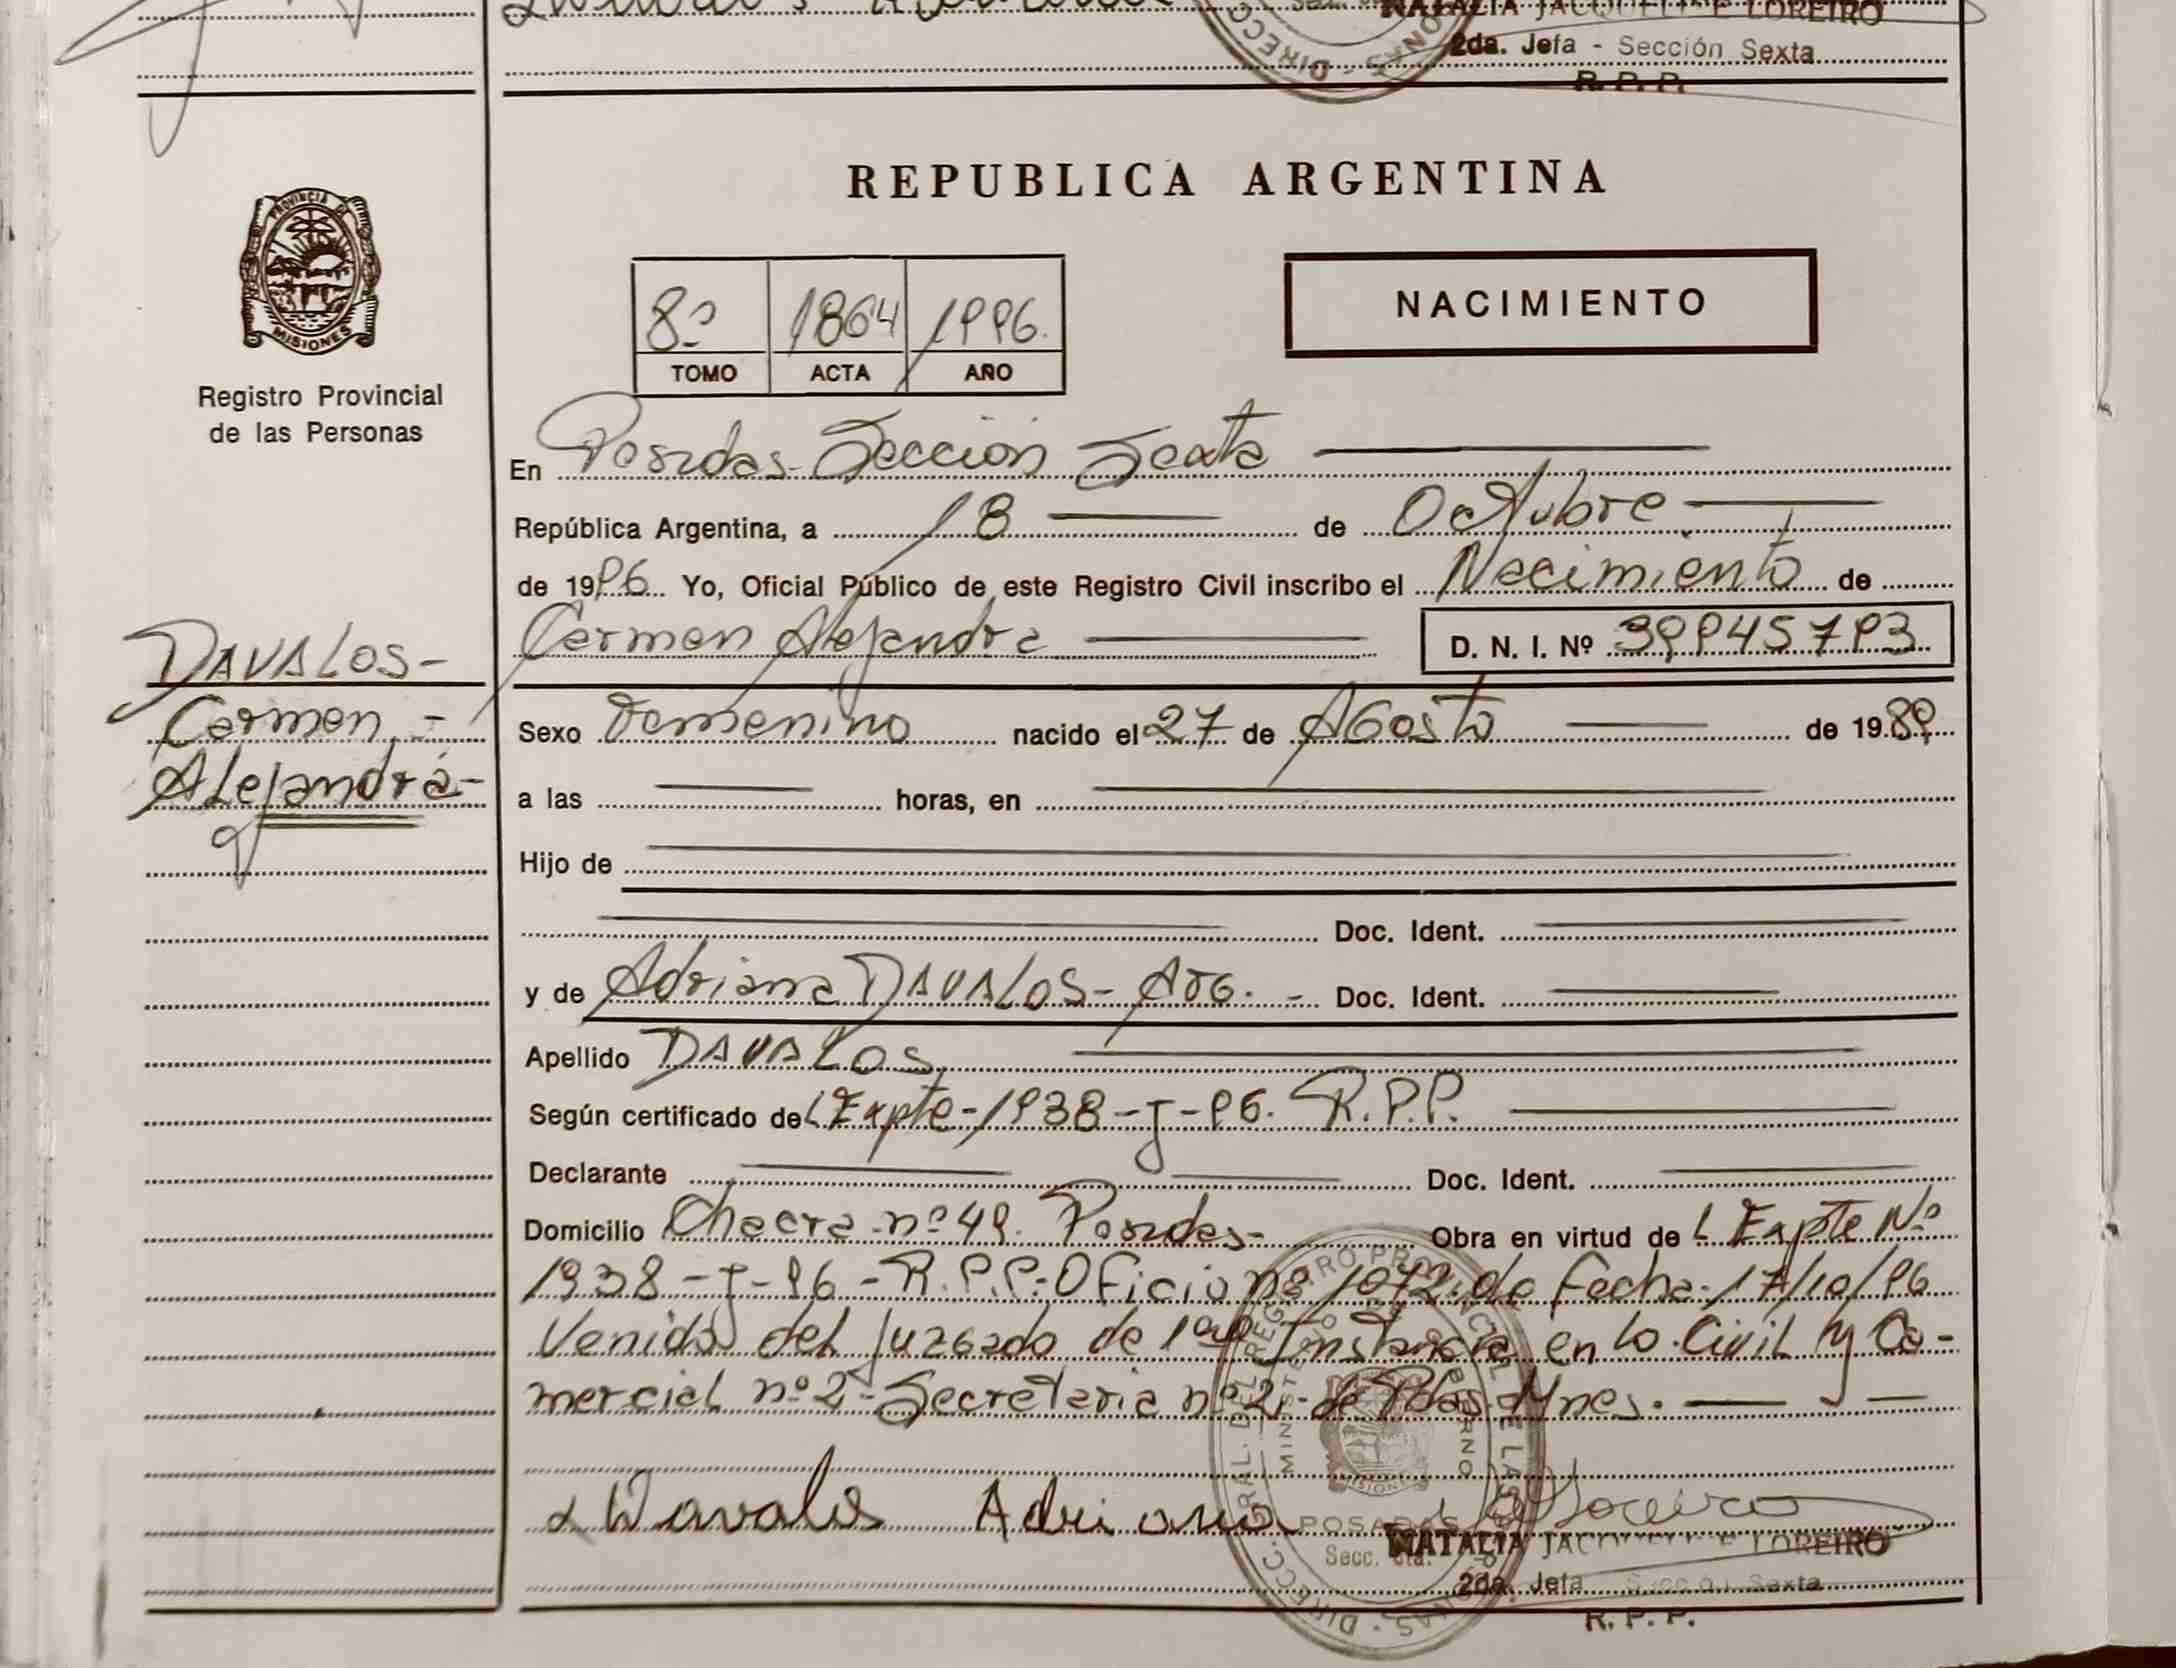 NATALIA JACQUELINE LOREIRO
2da. Jefa - Sección Sexta
R. P. P.
PROVINCIA DE
MISIONES
Registro Provincial
de las Personas
REPUBLICA ARGENTINA
8º 1864 1996.
TOMO ACTA AÑO
NACIMIENTO
En Posadas-Sección Sexta
República Argentina, a 18 de Octubre
de 1996 Yo, Oficial Público de este Registro Civil inscribo el Nacimiento de
Carmen Alejandra D. N. I. Nº 39945793
DAVALOS-
Carmen.-
Alejandra-
Sexo Femenino nacido el 27 de Agosto de 1989
a las horas, en
Hijo de
Doc. Ident.
y de Adriana DAVALOS- Arg. - Doc. Ident.
Apellido DAVALOS
Según certificado del Expte-1938-J-96. R.P.P.
Declarante Doc. Ident.
Domicilio Chacra nº 49. Posadas- Obra en virtud de L Expte Nº
1938-J-96-R.P.P.-Oficio nº 1072.de fecha-17/10/96
Venido del Juzgado de 1era Instancia en lo Civil y Co-
mercial nº 2-Secretaria nº 2.-de Pdas. Mnes.
Davalos Adriana
NATALIA JACQUELINE LOREIRO
2da. Jefa Sección Sexta
R. P. P.
DIRECC. GRAL. DEL REGISTRO PROVINCIAL DE LAS PERSONAS
MINISTERIO DE GOBIERNO
MISIONES
POSADAS
Secc. 6ta.